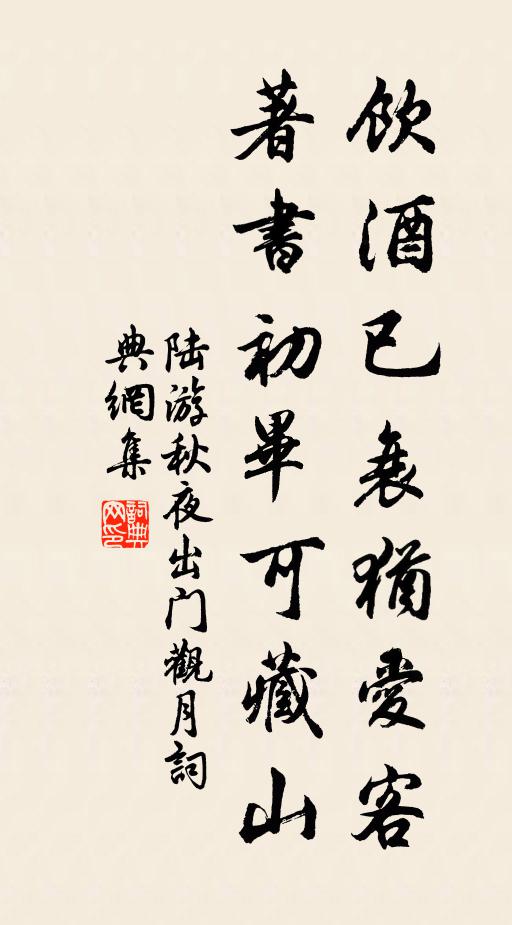 飲酒已衰猶愛客
著書初畢可藏山
陆游秋夜出门觀月詞
典網集
詞典
网印